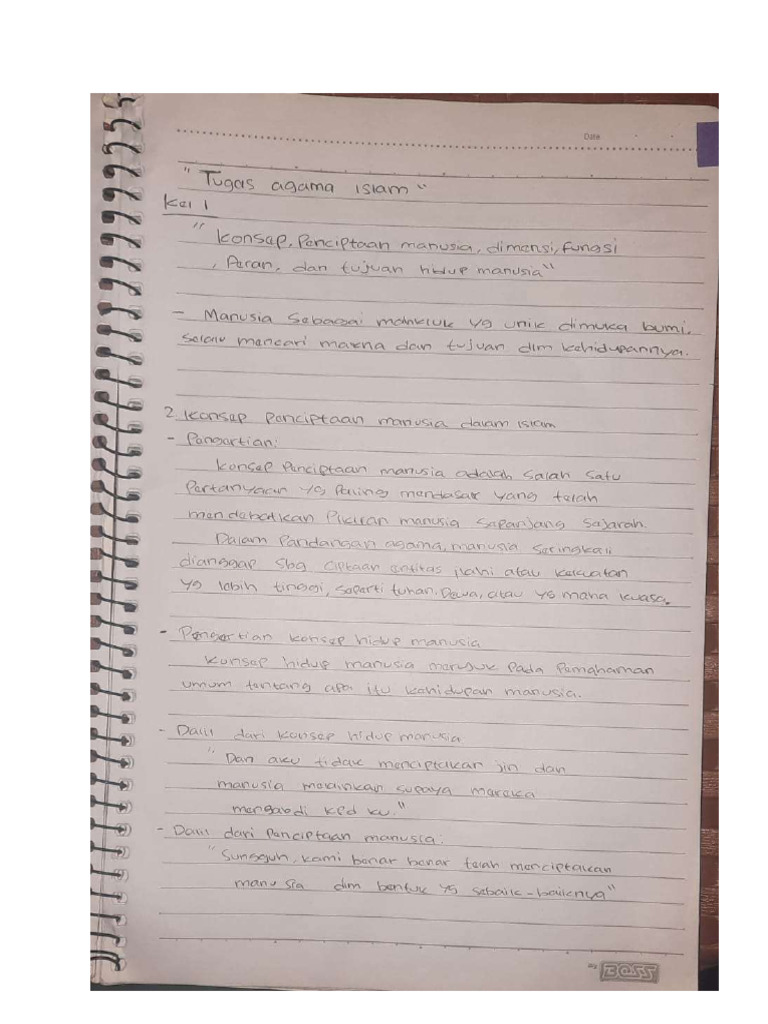 Date
" Tugas agama islam "
Kel 1
" Konsep, Penciptaan manusia, dimensi, fungsi
, Peran, dan tujuan hidup manusia"
- Manusia sebagai makhluk yg unik dimuka bumi,
selalu mencari makna dan tujuan dlm kehidupannya.
2 Konsep penciptaan manusia dalam islam
- Pengertian:
Konsep Penciptaan manusia adalah salah satu
Pertanyaan yg Paling mendasar yang telah
mendebatkan Pikiran manusia sepanjang sejarah.
Dalam Pandangan agama, manusia seringkali
dianggap sbg ciptaan entitas ilahi atau kekuatan
yg lebih tinggi, seperti tuhan, Dewa, atau yg maha kuasa.
- Pengertian konsep hidup manusia
Konsep hidup manusia merujuk pada Pemahaman
umum tentang apa itu kehidupan manusia.
- Dalil dari konsep hidup manusia
" Dan aku tidak menciptakan jin dan
manusia melainkan supaya mereka
mengabdi kpd ku."
- Dalil dari Penciptaan manusia:
" Sungguh, kami benar benar telah menciptakan
manusia dlm bentuk yg sebaik-baiknya"
by BOSS